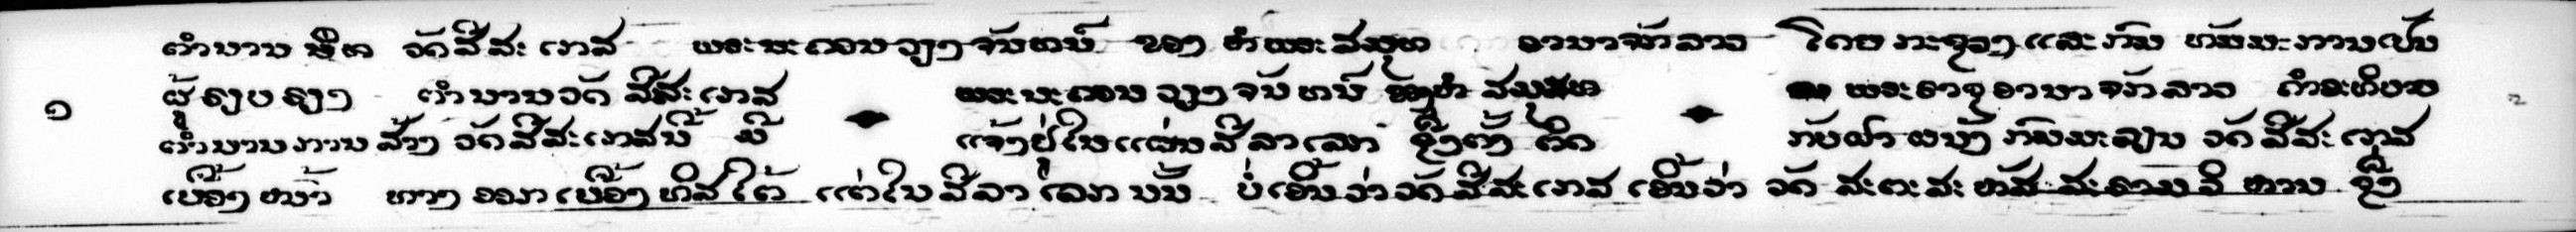 ຕຳນານ ພິດ ວັດສີສະເກສ ພຣະນະຄອນວຽງຈັນທນ໌ ຂອງ ຫໍພຣະສມຸດ ອານາຈັກລາວ ໂດຍ ກະຊວງ ແລະ ກົມ ທັມມະການເປັນ
ຜູ້ຮຽບຮຽງ ຕຳນານວັດ ສີສະເກສ ພຣະນະຄອນ ວຽງຈັນທນ໌ ສມຸດ ພຣະຣາຊອານາຈັກລາວ ຄຳອະທິບາຍ
ຕຳນານການສ້າງ ວັດສີສະເກສນີ້ ມີ ແຈ້ງຢູ່ໃນແຜ່ນສີລາເລກ ຊຶ່ງຕັ້ງ ຕິດ ກັບຝາຜນັງ ກົມມະລຽນ ວັດ ສີສະເກສ
ເບື້ອງໜ້າ ທາງ ອອກ ເບື້ອງທິສໃຕ້ ແຕ່ໃນສີລາເລກ ນັ້ນ ບໍ່ເອີ້ນວ່າວັດສີສະເກສ ເອີ້ນວ່າ ວັດ ສະຕະສະຫັສສະຣາມວິຫານ ຊຶ່ງ